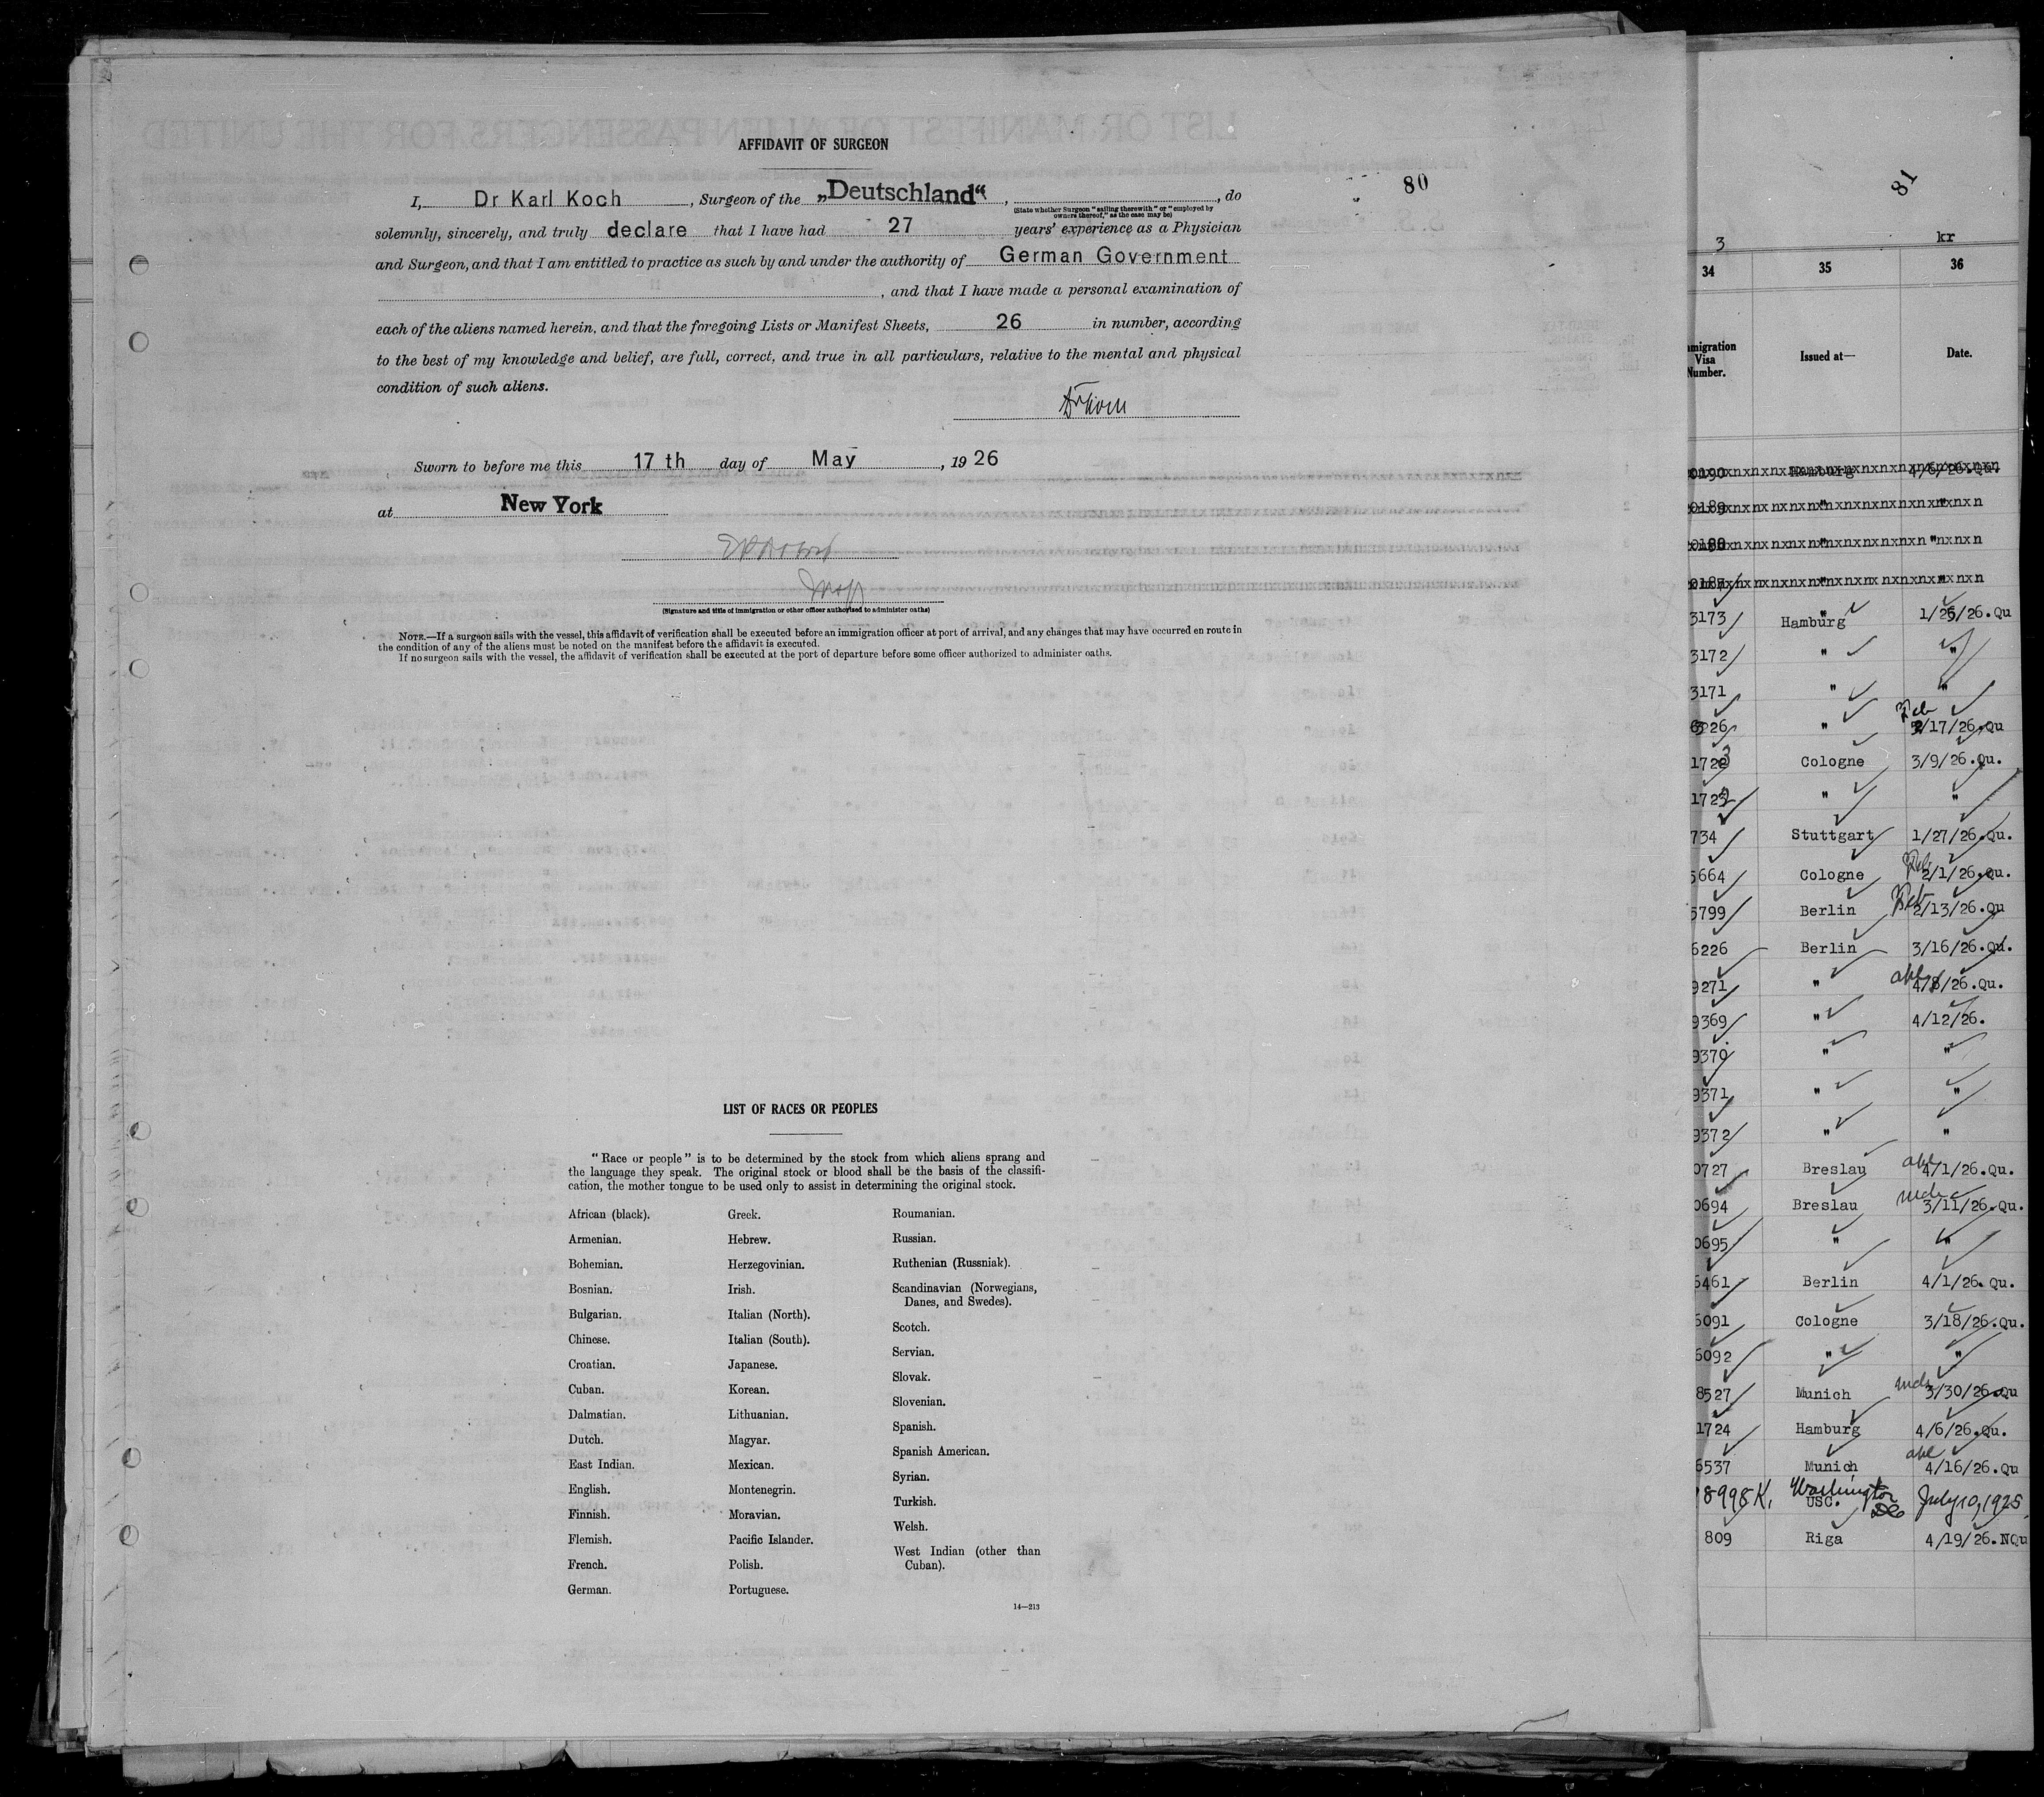 AFFIDAVIT OF SURGEON
80
I, Dr Karl Koch, Surgeon of the „Deutschland“, , do
(State whether Surgeon "sailing therewith" or "employed by owners thereof," as the case may be)
solemnly, sincerely, and truly declare that I have had 27 years' experience as a Physician
and Surgeon, and that I am entitled to practice as such by and under the authority of German Government
, and that I have made a personal examination of
each of the aliens named herein, and that the foregoing Lists or Manifest Sheets, 26 in number, according
to the best of my knowledge and belief, are full, correct, and true in all particulars, relative to the mental and physical
condition of such aliens.
Sworn to before me this 17 th day of May, 1926
at New York
(Signature and title of immigration or other officer authorized to administer oaths)
NOTE.—If a surgeon sails with the vessel, this affidavit of verification shall be executed before an immigration officer at port of arrival, and any changes that may have occurred en route in
the condition of any of the aliens must be noted on the manifest before the affidavit is executed.
If no surgeon sails with the vessel, the affidavit of verification shall be executed at the port of departure before some officer authorized to administer oaths.
LIST OF RACES OR PEOPLES
"Race or people" is to be determined by the stock from which aliens sprang and
the language they speak. The original stock or blood shall be the basis of the classifi-
cation, the mother tongue to be used only to assist in determining the original stock.
African (black).
Armenian.
Bohemian.
Bosnian.
Bulgarian.
Chinese.
Croatian.
Cuban.
Dalmatian.
Dutch.
East Indian.
English.
Finnish.
Flemish.
French.
German.
Greek.
Hebrew.
Herzegovinian.
Irish.
Italian (North).
Italian (South).
Japanese.
Korean.
Lithuanian.
Magyar.
Mexican.
Montenegrin.
Moravian.
Pacific Islander.
Polish.
Portuguese.
Roumanian.
Russian.
Ruthenian (Russniak).
Scandinavian (Norwegians,
Danes, and Swedes).
Scotch.
Servian.
Slovak.
Slovenian.
Spanish.
Spanish American.
Syrian.
Turkish.
Welsh.
West Indian (other than
Cuban).
14—213
81
3 kr
34 35 36
migration
Visa
Number.
Issued at—
Date.
0190 Hamburg 4/6/26.Qu.
0189 " "
" "
0187 " "
3173 Hamburg 1/25/26.Qu
3172 " "
3171 " "
6326 " Feb 2/17/26.Qu
1723 Cologne 3/9/26.Qu.
172 " "
734 Stuttgart 1/27/26.Qu.
5664 Cologne Feb 2/1/26.Qu.
5799 Berlin Feb 2/13/26.Qu
6226 Berlin 3/16/26.Qu.
9271 " 4/8/26.Qu.
9369 " 4/12/26.
9370 " "
9371 " "
9372 " "
0727 Breslau 4/1/26.Qu.
0694 Breslau 3/11/26.Qu.
0695 " "
6461 Berlin 4/1/26.Qu.
6091 Cologne 3/18/26.Qu.
6092 " "
8527 Munich 3/30/26.Qu
1724 Hamburg 4/6/26.Qu.
6537 Munich 4/16/26.Qu
8998 K, Washington DC USC. July 10, 1925
809 Riga 4/19/26.NQu